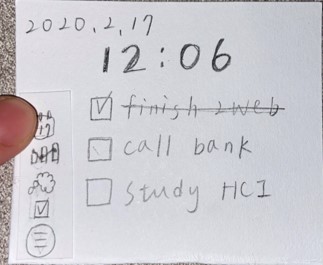 2020.2.17
12:06
finish 2 web
call bank
Study HCI
17